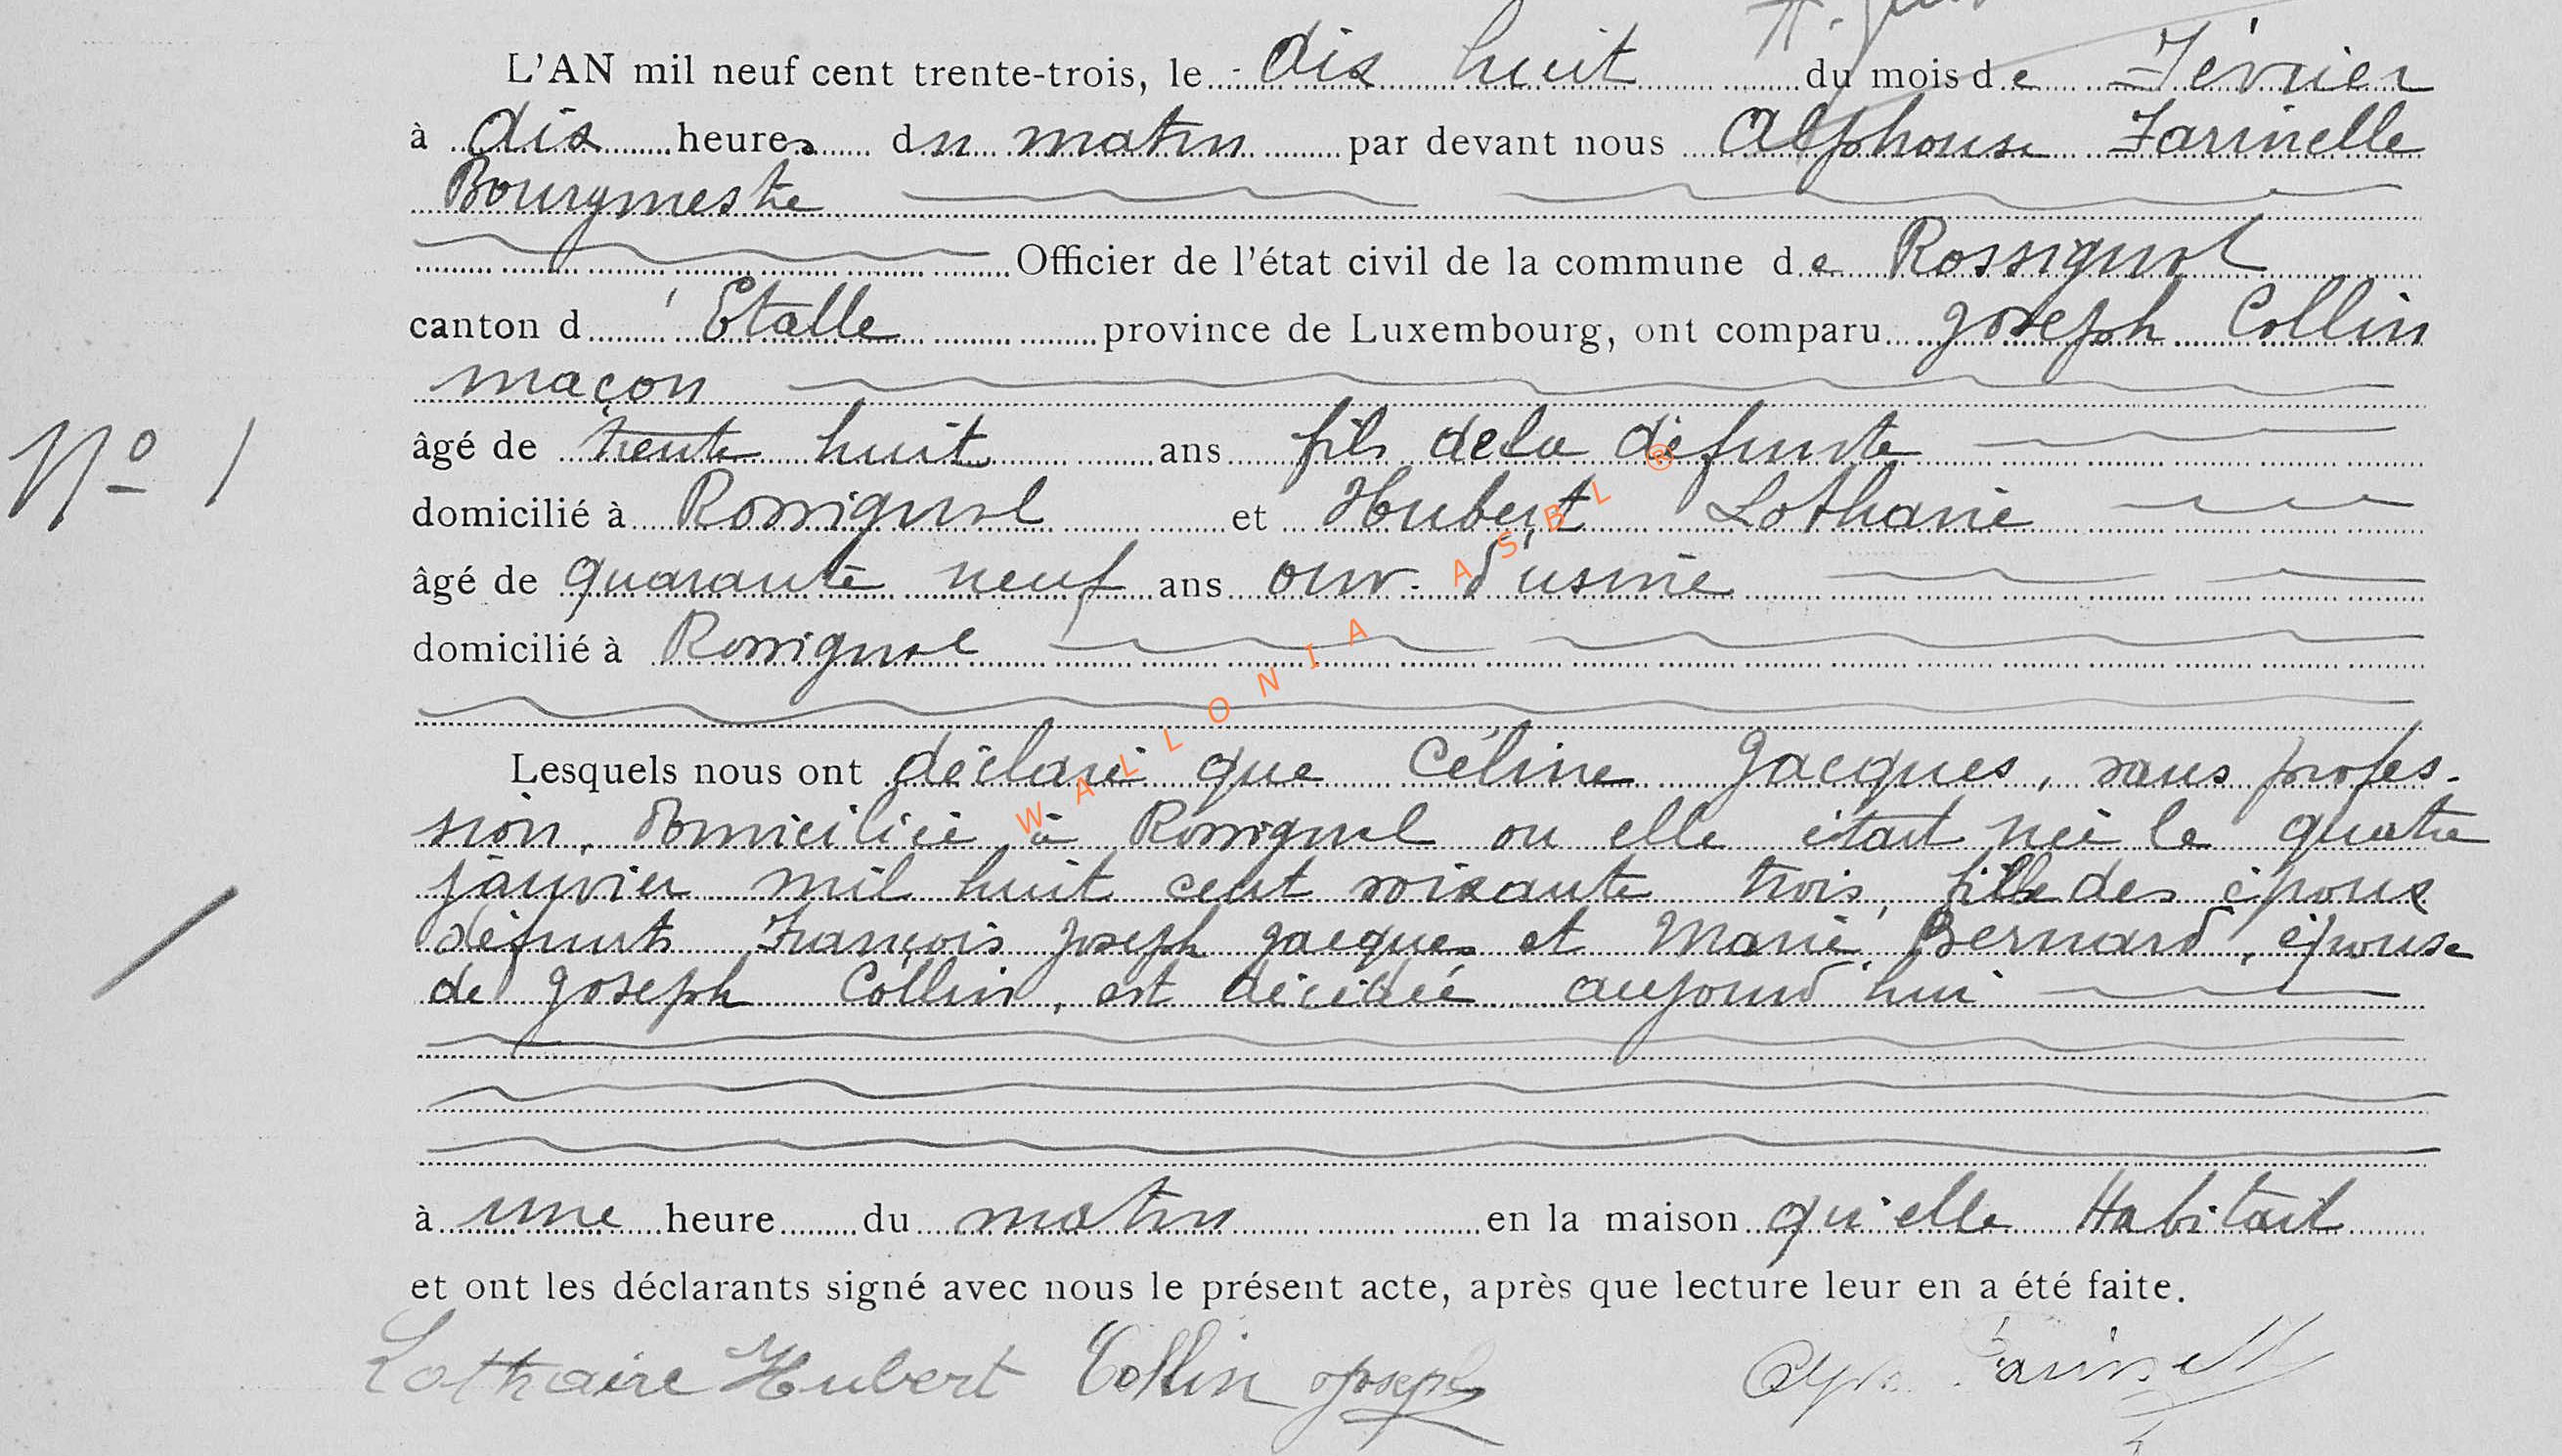 L'AN mil neuf cent trente-trois, le dix huit du mois de Février
à dix heures du matin par devant nous Alphonse Farinelle
Bourgmestre
Officier de l'état civil de la commune de Rossignol
canton d'Etalle province de Luxembourg, ont comparu Joseph Collin
maçon
âgé de trente huit ans fils de la défunte
N° 1
domicilié à Rossignol et Hubert Lothaire
âgé de quarante neuf ans ouv. d'usine
domicilié à Rossignol
Lesquels nous ont déclaré que Céline Jacques, sans profes-
sion, domiciliée à Rossignol ou elle était née le quatre
janvier mil huit cent soixante trois, fille des époux
défunts François Joseph Jacques et Marie Bernard, épouse
de Joseph Collin, est décédée aujourd'hui
à une heure du matin en la maison qu'elle Habitait
et ont les déclarants signé avec nous le présent acte, après que lecture leur en a été faite.
Lothaire Hubert Collin Joseph Alph. Farinelle
WALLONIA ASBL ®